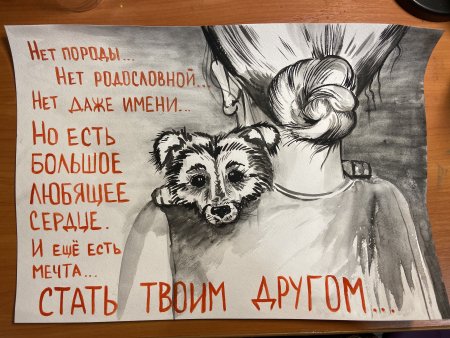 Нет породы...
Нет родословной...
Нет даже имени...
Но есть
большое
любящее
сердце.
И ещё есть
мечта...
СТАТЬ ТВОИМ ДРУГОМ...